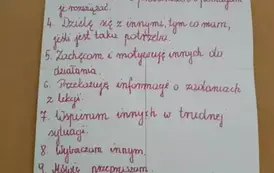 je rozwiązać.
4. Dzielę się z innymi, tym co mam,
jeśli jest taka potrzeba.
5. Zachęcam i motywuję innych do
działania.
6. Przekazuję informacje o zadaniach
z lekcji.
7. Wspieram innych w trudnej
sytuacji.
8. Wybaczam innym.
9. Mówię